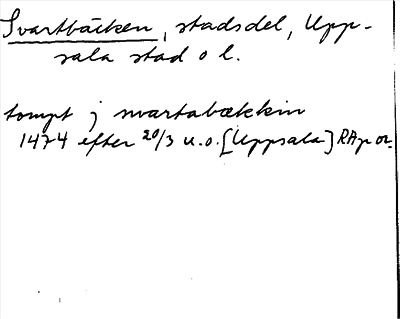 Svartbäcken, stadsdel, Upp-
sala stad o l.
tompt j swartabækkin
1474 efter 20/3 u.o. [Uppsala] RAp or.